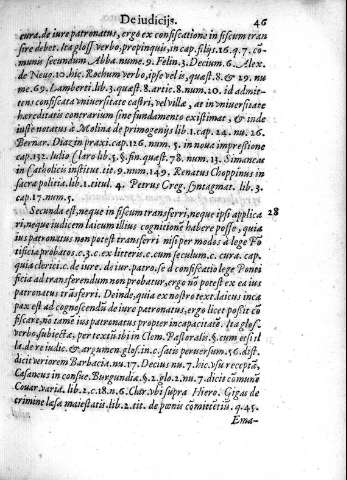 De iudicijs. 46
cura. de iure patronatus, ergo ex confiscatione in fiscum tran
sire debet. Ita gloss. verbo, propinquis, in cap. filijs. 16. q. 7. cõ-
munis secundum Abba. nume. 9. Felin. 3. Decium. 6. Alex.
de Neuo. 10. hic. Rochum verbo, ipse vel is, quæst. 8. & 29. nu
me. 69. Lamberti. lib. 3. quæst. 8. artic. 8. num. 10. id admit-
tens confiscata vniuersitate castri, vel villæ, at in vniuersitate
hæreditatis contrarium sine fundamento existimat, & inde
iuste notatus à Molina de primogenijs lib. 1. cap. 24. nu. 26.
Bernar. Diaz in praxi. cap. 126. num. 5. in noua impressione
cap. 132. Iulio Claro lib. 5. §. fin. quæst. 78. num. 13. Simancæ
in Catholicis institut. tit. 9. num. 149. Renatus Choppinus in
sacra politia. lib. 1. titul. 4. Petrus Greg. syntagmat. lib. 3.
cap. 17. num. 5.
Secunda est, neque in fiscum transferri, neque ipsi applica 28
ri, neque iudicem laicum illius cognitionẽ habere posse, quia
ius patronatus non potest transferri nisi per modos à lege Põ
tificia probatos. c. 3. c. ex litteris. c. cum seculum. c. cura. cap.
quia clerici. c. de iure. de iur. patro. sed confiscatio lege Ponti
ficia ad transferendum non probatur, ergo nõ potest ex ea ius
patronatus trãsferri. Deinde, quia ex nostro text. laicus inca
pax est ad cognoscendũ de iure patronatus, ergo licet possit cõ
fiscare, nõ tamẽ ius patronatus propter incapacitatẽ. Ita glos.
verbo, subiecta, per textũ ibi in Clem. Pastoralis. §. cum
la. de re iudic. & argumen. glos. in. c. satis peruersum. 56. dist.
dicit veriorem Barbacia. nu. 17. Decius nu. 7. hic. vsu receptã,
Casaneus in consue. Burgundiæ. §. 2. glo. 2. nu. 7. dicit cõmunẽ
Couar. varia. lib. 2. c. 18. n. 6. Clar. vbi supra Hiero. Gigas de
crimine læsæ maiestatis. lib. 2. tit. de pœnis cõmittẽtiũ. q. 45.
Ema-